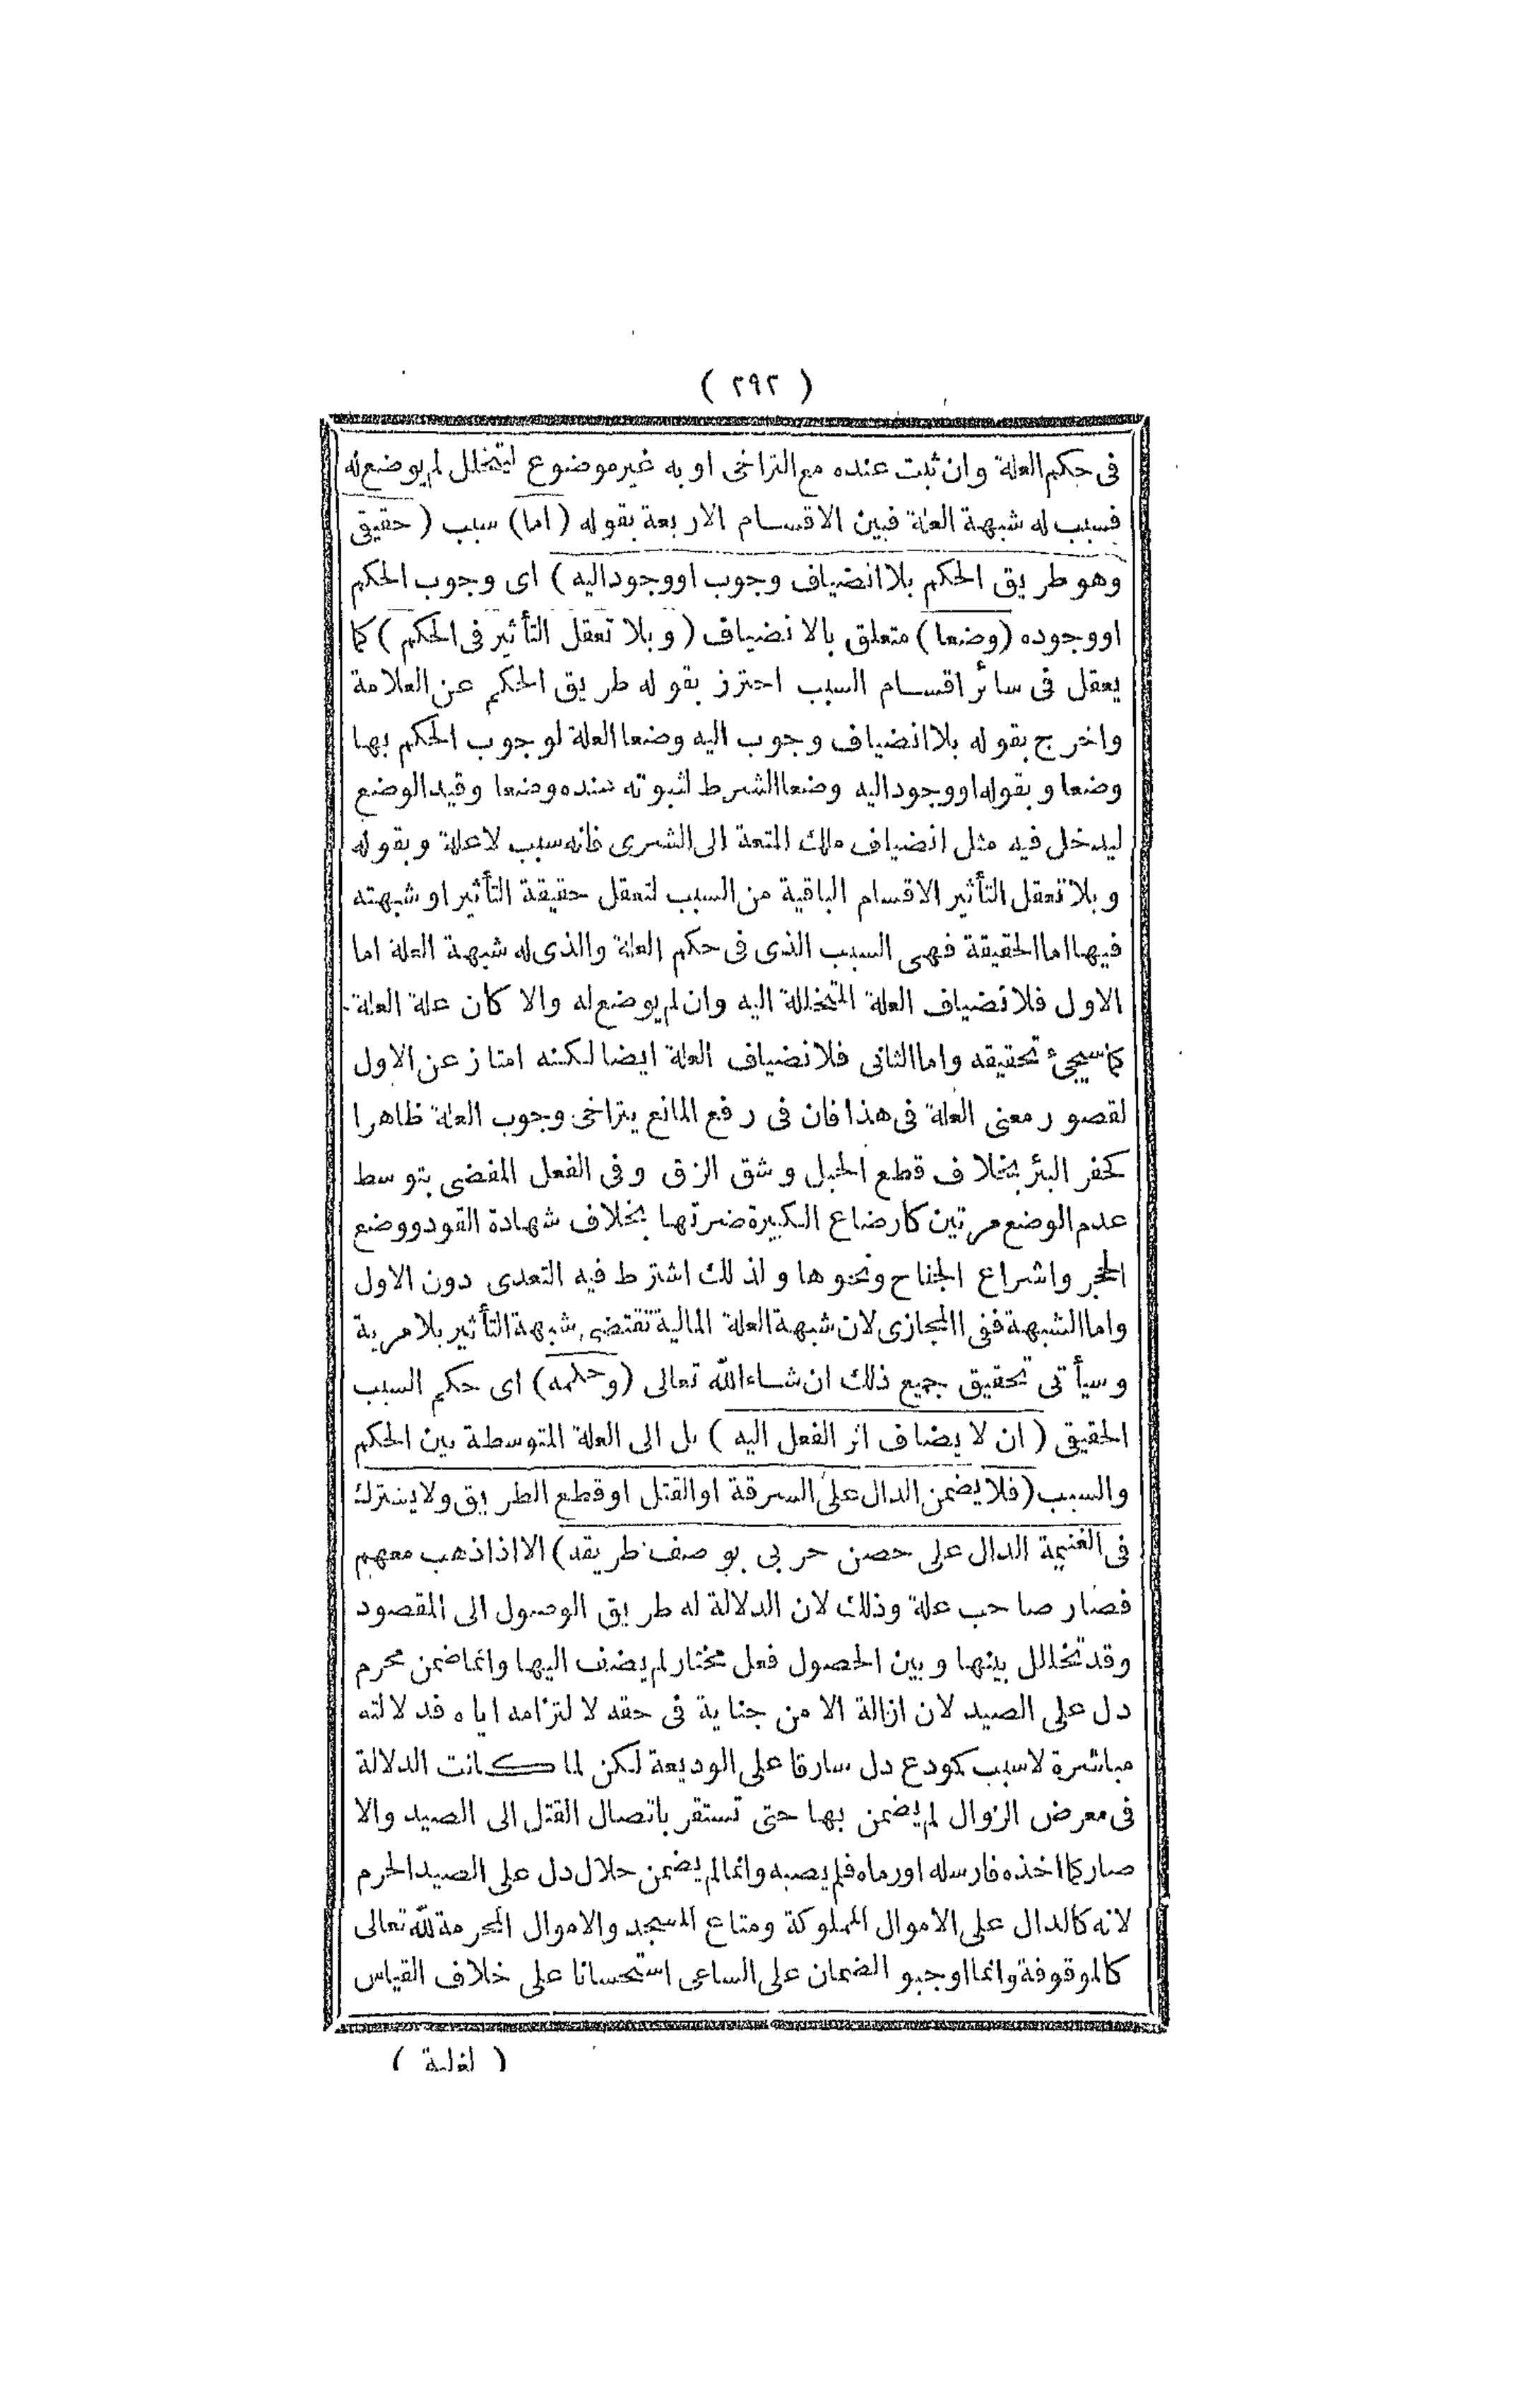 ( ٢٩٢ )
فى حكم العلة وان ثبت عنده مع التراخى او به غير موضوع ليتخلل لم يوضع له
فسبب له شبهة العلة فبين الاقسام الاربعة بقوله (اما) سبب (حقيقى
وهو طريق الحكم بلا انضياف وجوب او وجود اليه) اى وجوب الحكم
او وجوده (وضعا) متعلق بالانضياف (وبلا تعقل التأثير فى الحكم) كما
يعقل فى سائر اقسام السبب احترز بقوله طريق الحكم عن العلامة
واخرج بقوله بلا انضياف وجوب اليه وضعا العلة لوجوب الحكم بها
وضعا وبقوله او وجود اليه وضعا الشرط لثبوته عنده وضعا وقيد الوضع
ليدخل فيه مثل انضياف ملك المتعة الى الشرى فانه سبب لا علة وبقوله
وبلا تعقل التأثير الاقسام الباقية من السبب لتعقل حقيقة التأثير او شبهته
فيها اما الحقيقة فهى السبب الذى فى حكم العلة والذى له شبهة العلة اما
الاول فلانضياف العلة المتخللة اليه وان لم يوضع له والا كان علة العلة
كما سيجئ تحقيقه واما الثانى فلانضياف العلة ايضا لكنه امتاز عن الاول
لقصور معنى العلة فى هذا فان فى رفع المانع يتراخى وجوب العلة ظاهرا
كحفر البئر بخلاف قطع الحبل وشق الزق وفى الفعل المفضى بتوسط
عدم الوضع مرتين كارضاع الكبيرة ضرتها بخلاف شهادة القود ووضع
الحجر واشراع الجناح ونحوها ولذلك اشترط فيه التعدى دون الاول
واما الشبهة ففى المجازى لان شبهة العلة المالية تقتضى شبهة التأثير بلا مرية
وسيأتى تحقيق جميع ذلك ان شاء الله تعالى (وحكمه) اى حكم السبب
الحقيقى (ان لا يضاف اثر الفعل اليه) بل الى العلة المتوسطة بين الحكم
والسبب (فلا يضمن الدال على السرقة او القتل او قطع الطريق ولا يشترك
فى الغنيمة الدال على حصن حربى بوصف طريقه) الا اذا ذهب معهم
فصار صاحب علة وذلك لان الدلالة له طريق الوصول الى المقصود
وقد تخلل بينها وبين الحصول فعل مختار لم يضف اليها وانما ضمن محرم
دل على الصيد لان ازالة الامن جناية فى حقه لالتزامه اياه فدلالته
مباشرة لا سبب كمودع دل سارقا على الوديعة لكن لما كانت الدلالة
فى معرض الزوال لم يضمن بها حتى تستقر باتصال القتل الى الصيد والا
صار كما اخذه فارسله او رماه فلم يصبه وانما لم يضمن حلال دل على الصيد الحرم
لانه كالدال على الاموال المملوكة ومتاع المسجد والاموال المحرمة لله تعالى
كالموقوفة وانما اوجبو الضمان على الساعى استحسانا على خلاف القياس
( لغلبة )